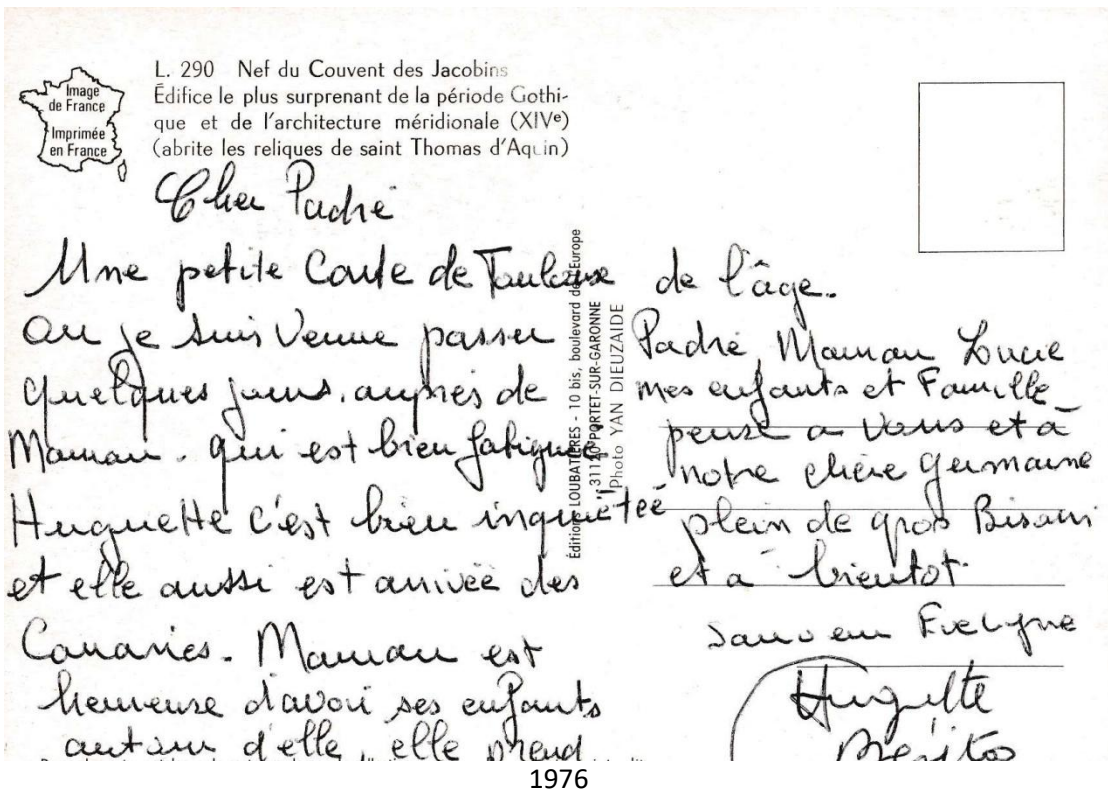 Image
de France
Imprimée
en France
L. 290 Nef du Couvent des Jacobins
Édifice le plus surprenant de la période Gothi-
que et de l'architecture méridionale (XIVe)
(abrite les reliques de saint Thomas d'Aquin)
Cher Padré
Une petite Carte de Toulouse
ou je suis Venue passer
quelques jours. auprès de
Maman. qui est bien fatiguée.
Huguette c'est bien inquiétée
et elle aussi est arrivée des
Canaries. Maman est
heureuse d'avoir ses enfants
autour d'elle, elle prend
Éditions LOUBATIÈRES - 10 bis, boulevard de l'Europe
31120 PORTET-SUR-GARONNE
Photo YAN DIEUZAIDE
de l'âge.
Padré, Maman Lucie
mes enfants et Famille
pense a Vous et à
notre chère Germaine
plein de gros Bisous
et a bientot.
Evelyne
Huguette
Benitos
1976